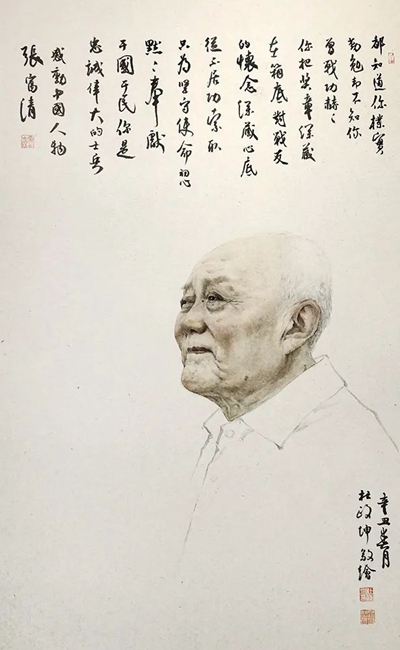 都知道你樸實
勤勉却不知你
曾戰功赫々
你把奖章深藏
在箱底對戰友
的懷念深藏心底
從不居功索取
只為堅守使命初心
默々奉獻
于國于民你是
忠誠偉大的士兵
感動中國人物
張富清
辛丑 月
杜政坤敬繪